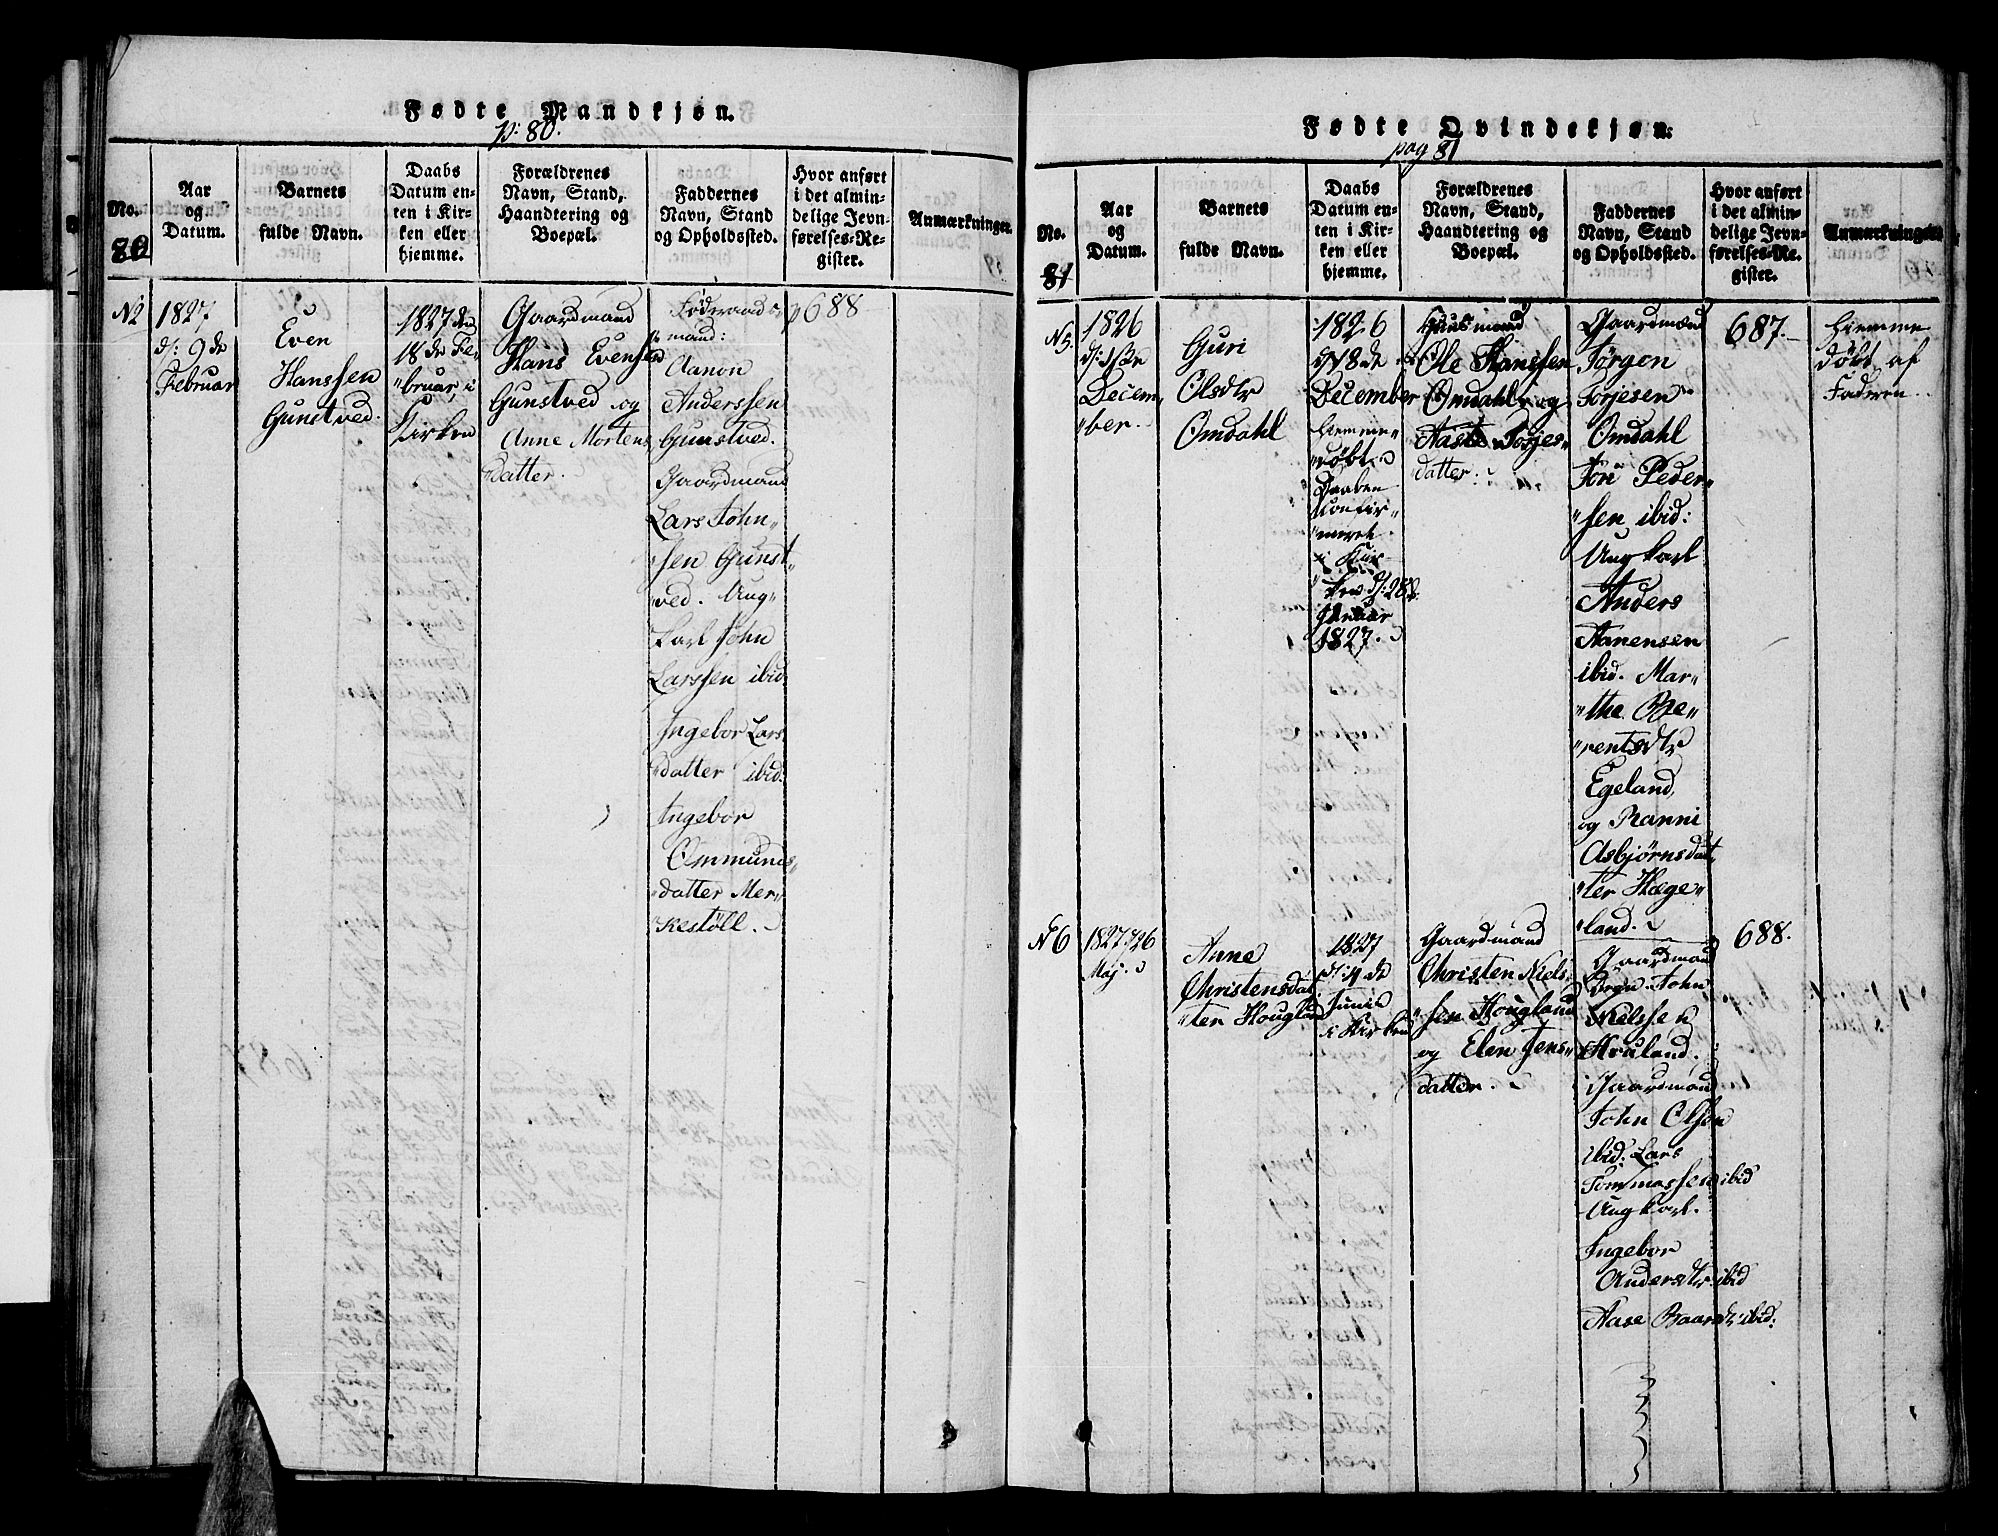 Fødte Mandkjøn.
p: 80.
No.
80
Aar
og
Datum.
Barnets
fulde Navn.
Daabs
Datum en-
ten i Kir-
ken eller
hjemme.
Forældrenes
Navn, Stand,
Haandtering og
Boepæl.
Faddernes
Navn, Stand
og Opholdssted.
Hvor anført
i det almin-
delige Jevn-
førelses-Re-
gister.
Anmærkninger.
N2
1827
d: 9de
Februar
Even
Hanssen
Gunstved.
1827 den
18de Fe-
"bruar, i
Kirken
Gaardmand
Hans Evensen
Gunstved og
Anne Mortens
"datter.
Føderaads-
mand:
Aanon
Anderssen
Gunstved.
Gaardmand
Lars John-
"sen Gunst-
"ved. Ung-
karl John
Larssen ibid.
Ingebor Lars
"datter ibid:
Ingebor
Ommunds-
"datter Mer-
"kestöll.
p 688
Fødte Qvindekjøn.
pag 81
No.
81
Aar
og
Datum.
Barnets
fulde Navn.
Daabs
Datum en-
ten i Kir-
ken eller
hjemme.
Forældrenes
Navn, Stand,
Haandtering og
Boepæl.
Faddernes
Navn, Stand
og Opholdssted.
Hvor anført
i det almin-
delige Jevn-
førelses-Re-
gister.
Anmærkninger.
N5.
1826
Decem-
"ber.
Guri
Olsdtr
Omdahl
1826
December
hjemme-
"døbt
Daaben
Confir-
"meret
i Kir-
ken d: 28de
Januar
1827.
Huusmand
Ole Hanssen
Omdahl og
Aaste Torjes-
"datter.
Gaardmand
Jörgen
Torjesen
Omdahl
Tori Peder-
"sen ibid:
Ungkarl
Anders
Aanensen
ibid. Mar-
"the Be-
"rentsdtr
Egeland,
og Ranni
Asbjørnsdat-
"ter Hæge-
"land.
687.
Hjemme
døbt af
Faderen.
N6
1827 d 26
Maj.
Anne
Christensdat
"ter Hougland
1827
Junii
i Kirken
Gaardmand
Christen Niels-
"sen Hougland
og Elen Jens-
datter.
Gaardmand
John
Nielssen
Gaardmand
John Olsen
ibid: Lars
Tommassen ibid
Ungkarl.
Ingebor
Andersdtr ibid
Aase Baardsdtr ibid:
688.